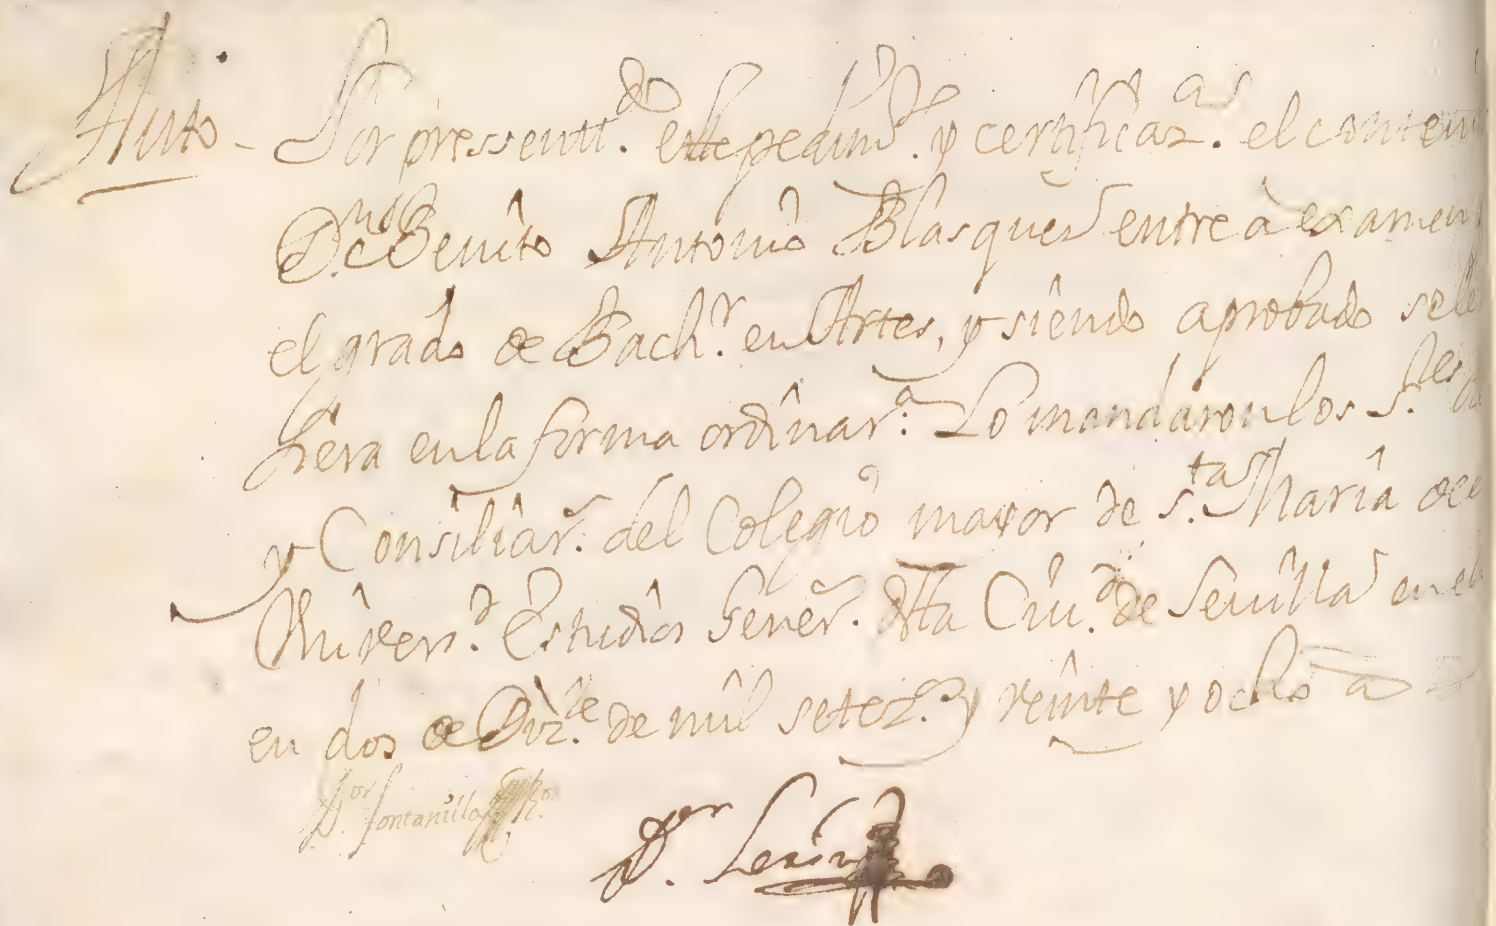 Auto - Por pressentt.do este pedimto. y certificaz.as el conteni
D.n Benito Antonio Blasques entre à examen
el grado de Bach.r en Artes, y siendo aprobado se le
fiera en la forma ordinar.a Lo mandaron los S.res
y Consiliar.s del Colegio mayor de S.ta Maria de
Univers.d Estudio Gener. dsta Ciu.d de Sevilla en el
en dos de Diz.re de mil setez.s y veinte y ocho a
D.or fontanilla
D.or